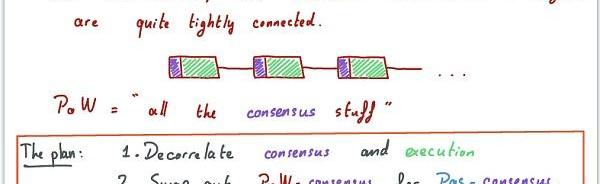 are quite tightly connected.
...
PoW = "all the consensus stuff"
The plan: 1. Decorrelate consensus and execution
2. Swap out PoW-consensus for Pos-consensus